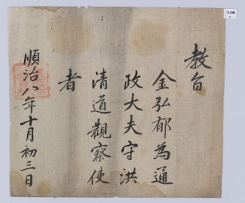 教旨
金弘郁為通
政大夫守洪
清道觀察使
者
順治八年十月初三日